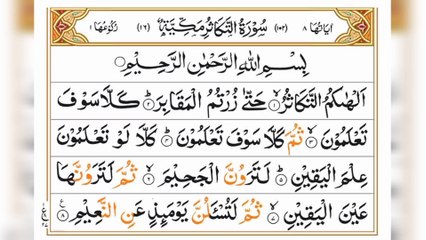 اٰيَاتُهَا ٨ (١٠٢) سُوْرَةُ التَّكَاثُرِ مَكِّيَّةٌ (١٦) رُكُوْعُهَا ١
بِسْمِ اللّٰهِ الرَّحْمٰنِ الرَّحِيْمِ
اَلْهٰىكُمُ التَّكَاثُرُ ۙ١ حَتّٰى زُرْتُمُ الْمَقَابِرَ ؕ٢ كَلَّا سَوْفَ
تَعْلَمُوْنَ ۙ٣ ثُمَّ كَلَّا سَوْفَ تَعْلَمُوْنَ ؕ٤ كَلَّا لَوْ تَعْلَمُوْنَ
عِلْمَ الْيَقِيْنِ ؕ٥ لَتَرَوُنَّ الْجَحِيْمَ ۙ٦ ثُمَّ لَتَرَوُنَّهَا
عَيْنَ الْيَقِيْنِ ۙ٧ ثُمَّ لَتُسْـَٔلُنَّ يَوْمَئِذٍ عَنِ النَّعِيْمِ ٨